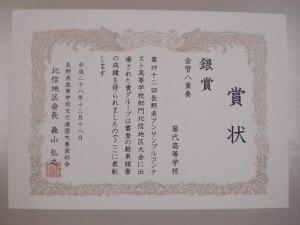 賞状
銀賞
金管八重奏
屋代高等学校
第四十二回長野県アンサンブルコンテ
スト高等学校部門北信地区大会に出
場された貴グループは審査の結果頭書
の成績を得られましたのでここに表彰
します
平成二十八年十二月十八日
長野県高等学校文化連盟吹奏楽部会
北信地区会長 森山 弘之